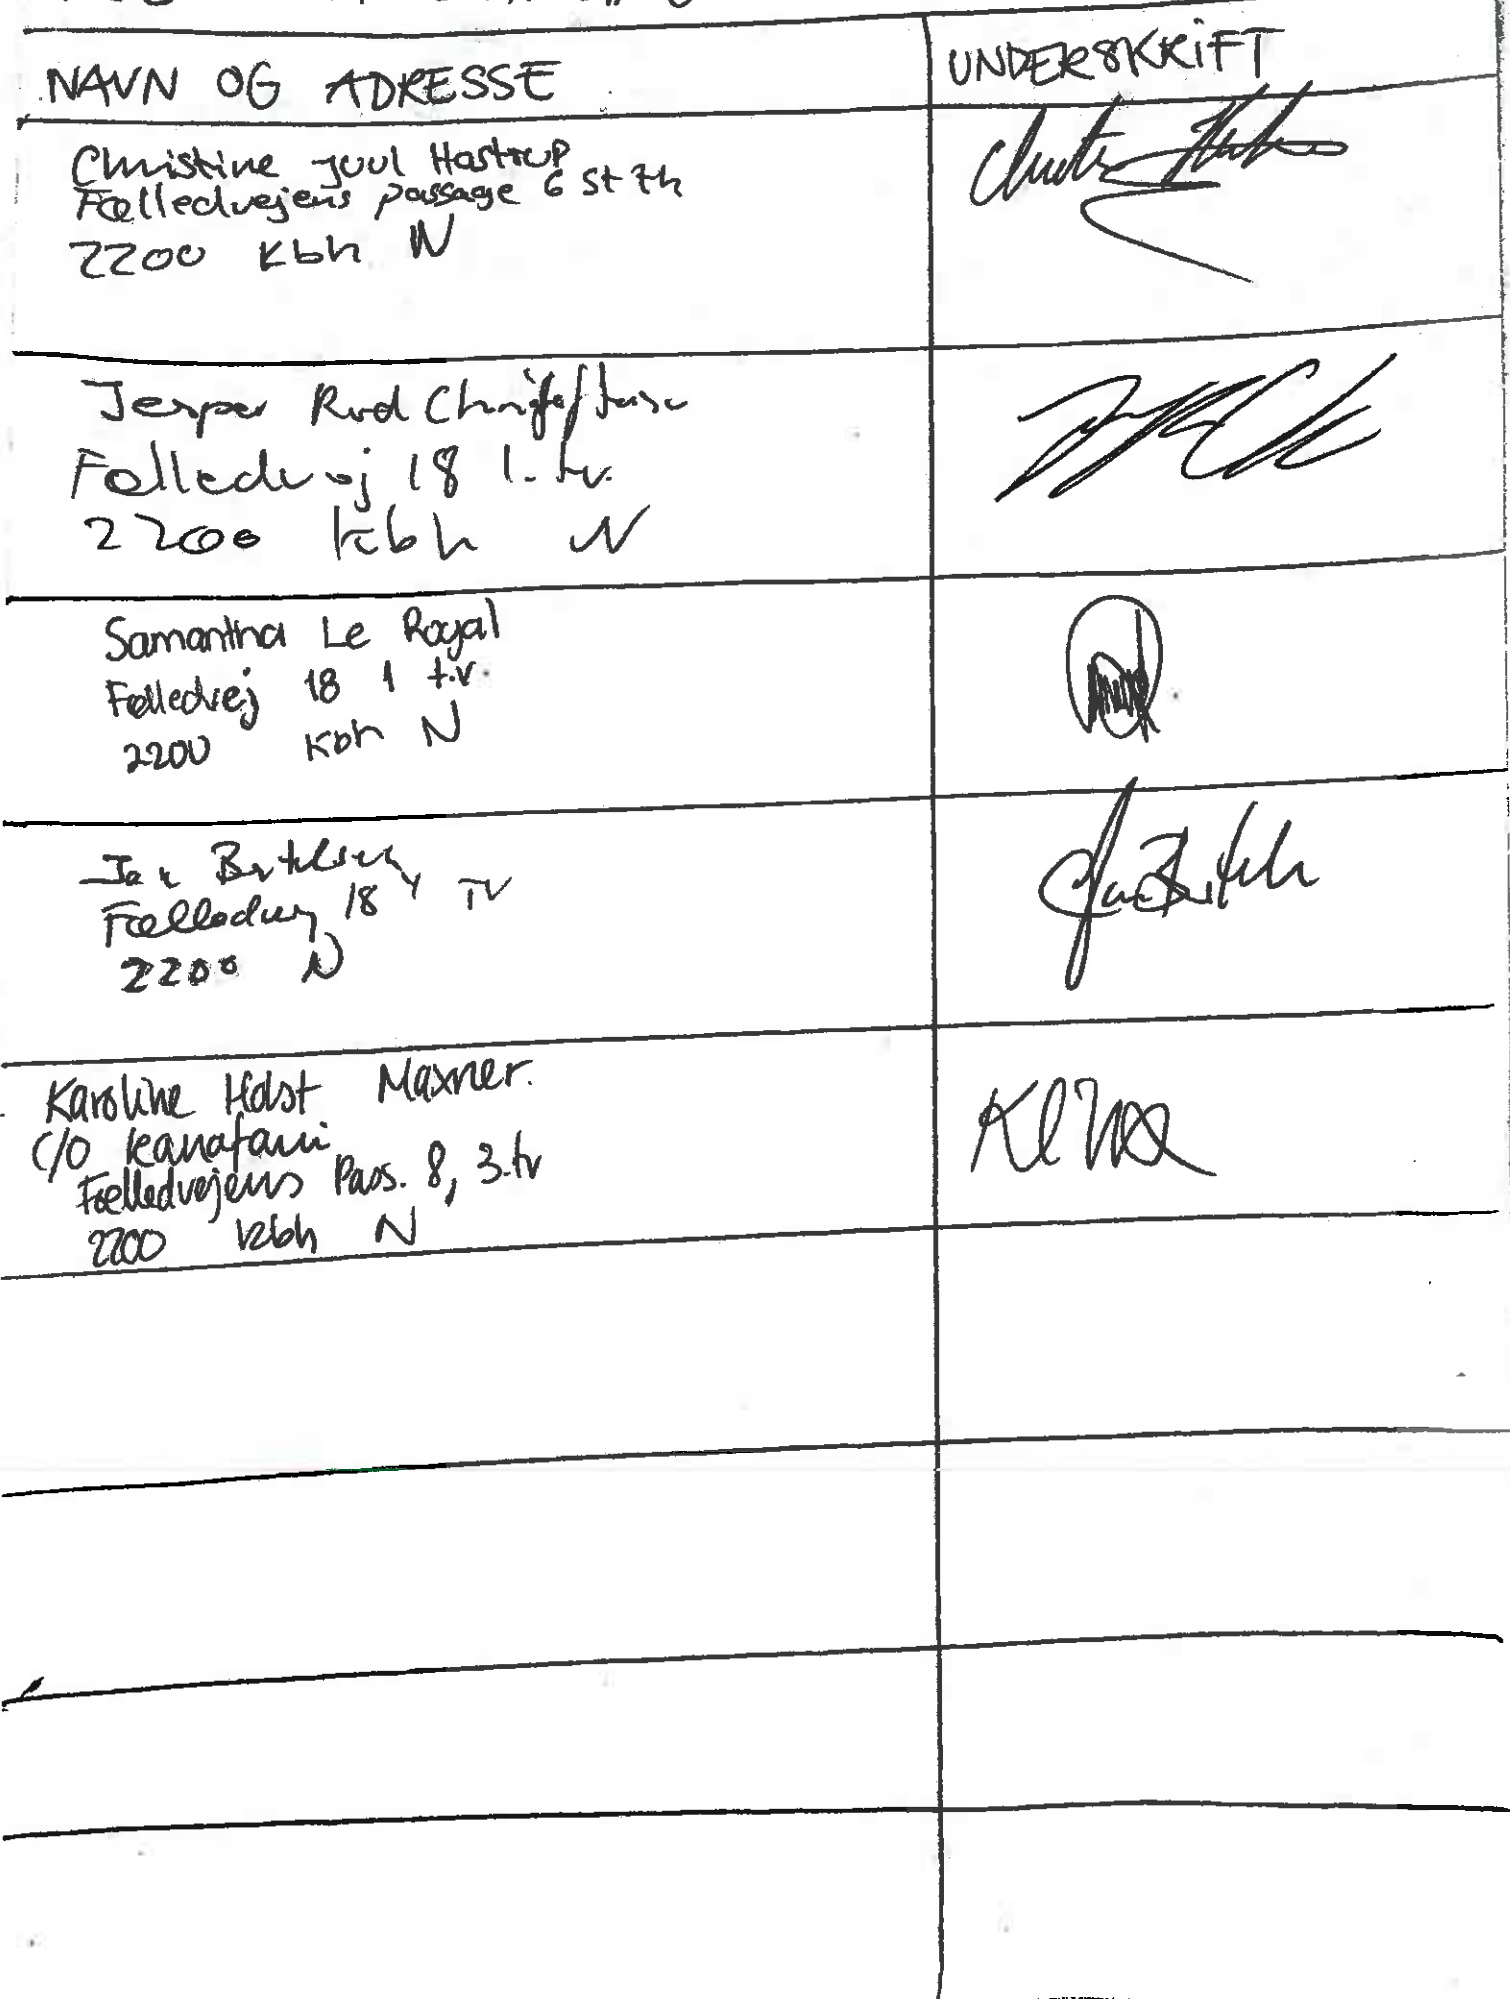 NAVN OG ADRESSE
UNDERSKRIFT
Christine Juul Hastrup
Fælledvejens passage 6 st th
2200 Kbh N
Jesper Rud
Fælledvej 18 1. tv.
2200 Kbh N
Samantha Le Royal
Fælledvej 18 1 t.v.
2200 Kbh N
Jan
Fælledvej 18 TV
2200 N
Karoline Holst Maxner.
C/O Kanafani
Fælledvejens Pass. 8, 3.tv
2200 Kbh N